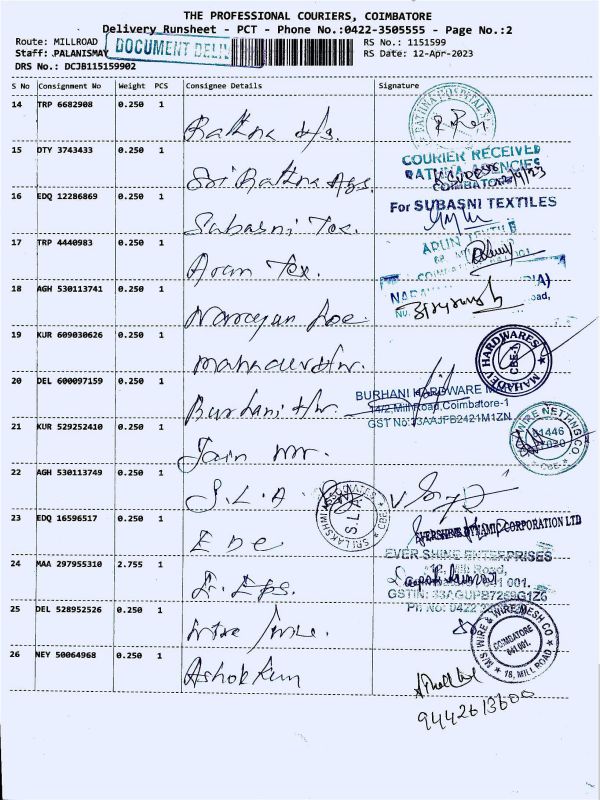 THE PROFESSIONAL COURIERS, COIMBATORE
Delivery Runsheet - PCT - Phone No.:0422-3505555 - Page No.:2
Route: MILLROAD
DOCUMENT DELI
RS No.: 1151599
Staff: PALANISMAY
RS Date: 12-Apr-2023
DRS No.: DCJB115159902
S No Consignment No Weight PCS Consignee Details Signature
14 TRP 6682908 0.250 1
Rathna
RATHNA HOSPITAL
15 DTY 3743433 0.250 1
Sri Rathna Ags.
COURIER RECEIVED
RATHNA AGENCIES
COIMBATORE
16 EDQ 12286869 0.250 1
Subasni Tex.
For SUBASNI TEXTILES
17 TRP 4440983 0.250 1
Arun Tex.
ARUN TEXTILE
18 AGH 530113741 0.250 1
Narayan
19 KUR 609030626 0.250 1
Mahadev Hw.
MAHADEV HARDWARES
CBE-1
20 DEL 600097159 0.250 1
Burhani Hw.
BURHANI HARDWARE
14/2, Mill Road, Coimbatore-1
GST No: 33AAJFB2421M1ZN
21 KUR 529252410 0.250 1
Jain
WIRE NETTING CO.
CBE-1
22 AGH 530113749 0.250 1
S.L.A
SRI LAKSHMI ASSOCIATES
S.L.A
CBE
23 EDQ 16596517 0.250 1
EDC
EVERSHINE DYNAMIC CORPORATION LTD
24 MAA 297955310 2.755 1
E. Eps.
EVER SHINE ENTERPRISES
Mill Road,
641 001.
GSTIN: 33AGUPB7259G1Z6
25 DEL 528952526 0.250 1
M/S. WIRE & WIRE MESH CO
COIMBATORE
641 001.
18, MILL ROAD
26 NEY 50064968 0.250 1
Ashok Kum
9442613600